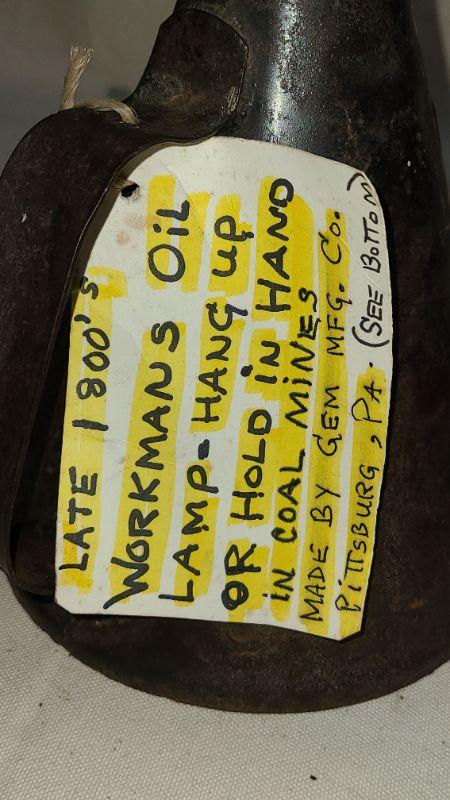 LATE 1800's
WORKMANS OIL
LAMP-HANG UP
OR HOLD IN HAND
IN COAL MINES
MADE BY GEM MFG. CO.
PITTSBURG, PA. (SEE BOTTOM)